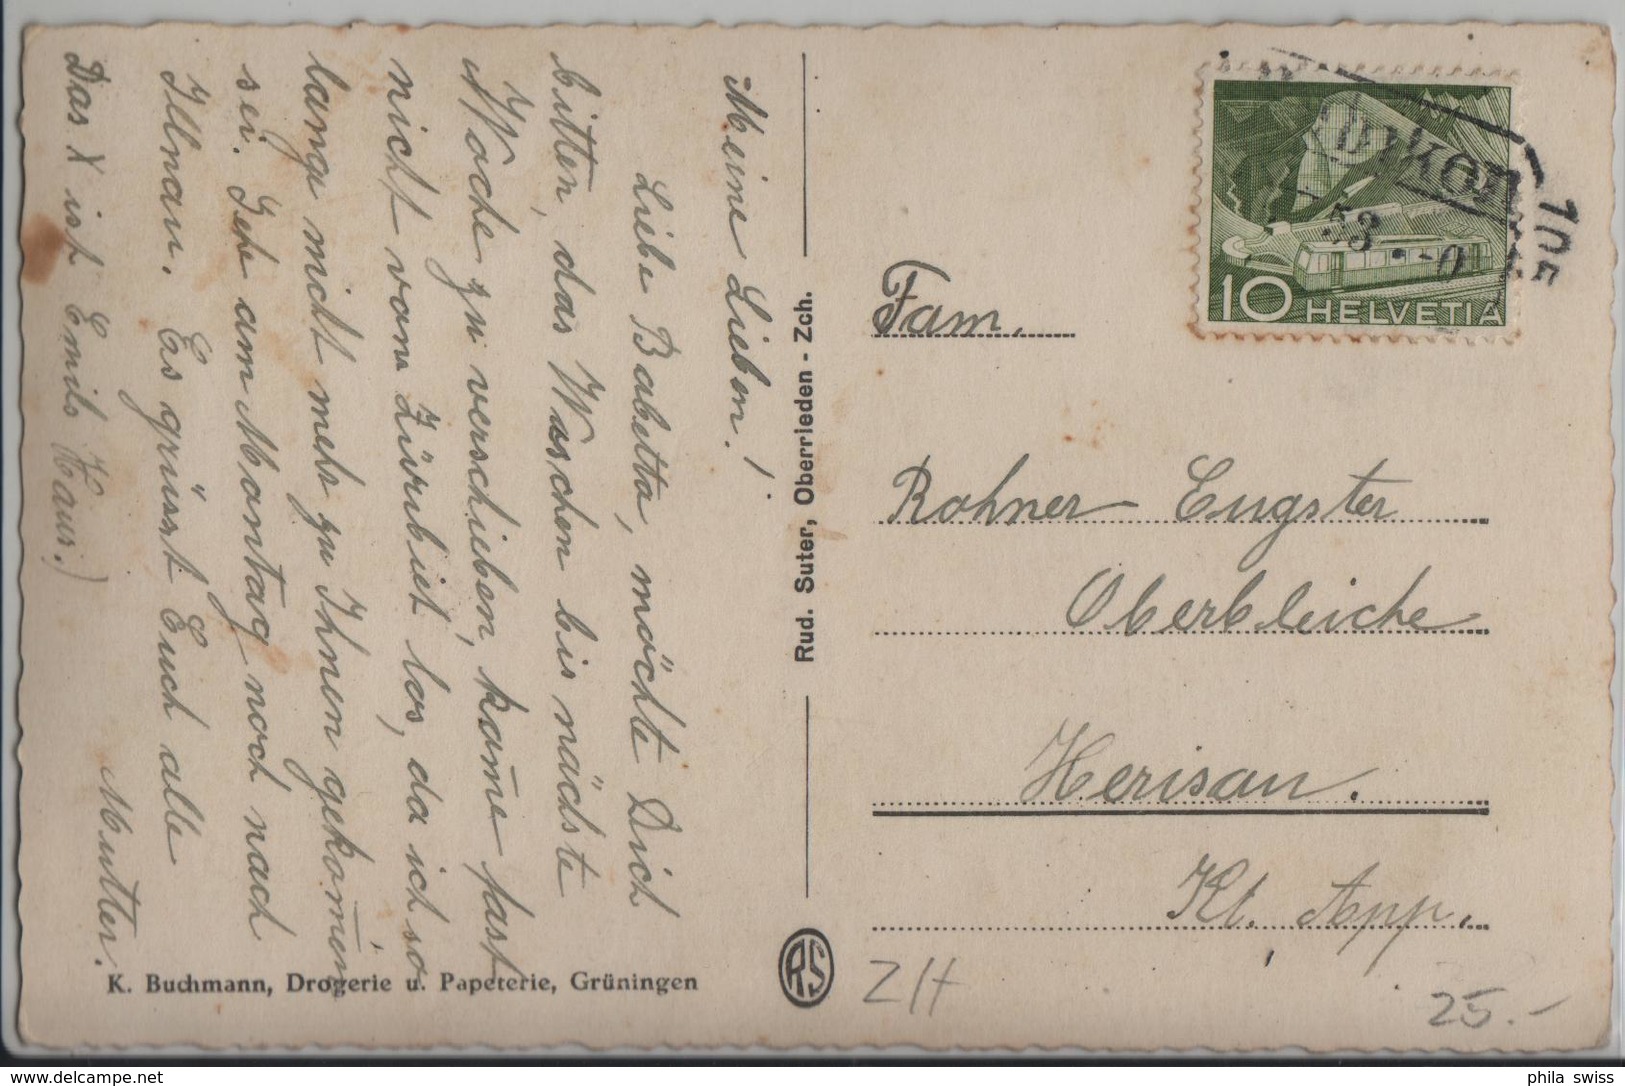 Meine Lieben!
Liebe Babetta, möchte Dich
bitten, das Waschen bis nächste
Woche zu verschieben, kom̅e fast
nicht vom Zürribiet los, da ich so
lange nicht mehr zu Ihnen gekom̅en
sei. Gehe am Montag noch nach
Illnau. Es grüsst Euch alle
Mutter.
Das X ist Emils Haus.)
K. Buchmann, Drogerie u. Papeterie, Grüningen
Rud. Suter, Oberrieden - Zch.
RS
10 HELVETIA
53
Fam.
Rohner Eugster
Oberbleiche
Herisau.
Kt. App.
ZH
25.-
phila swiss